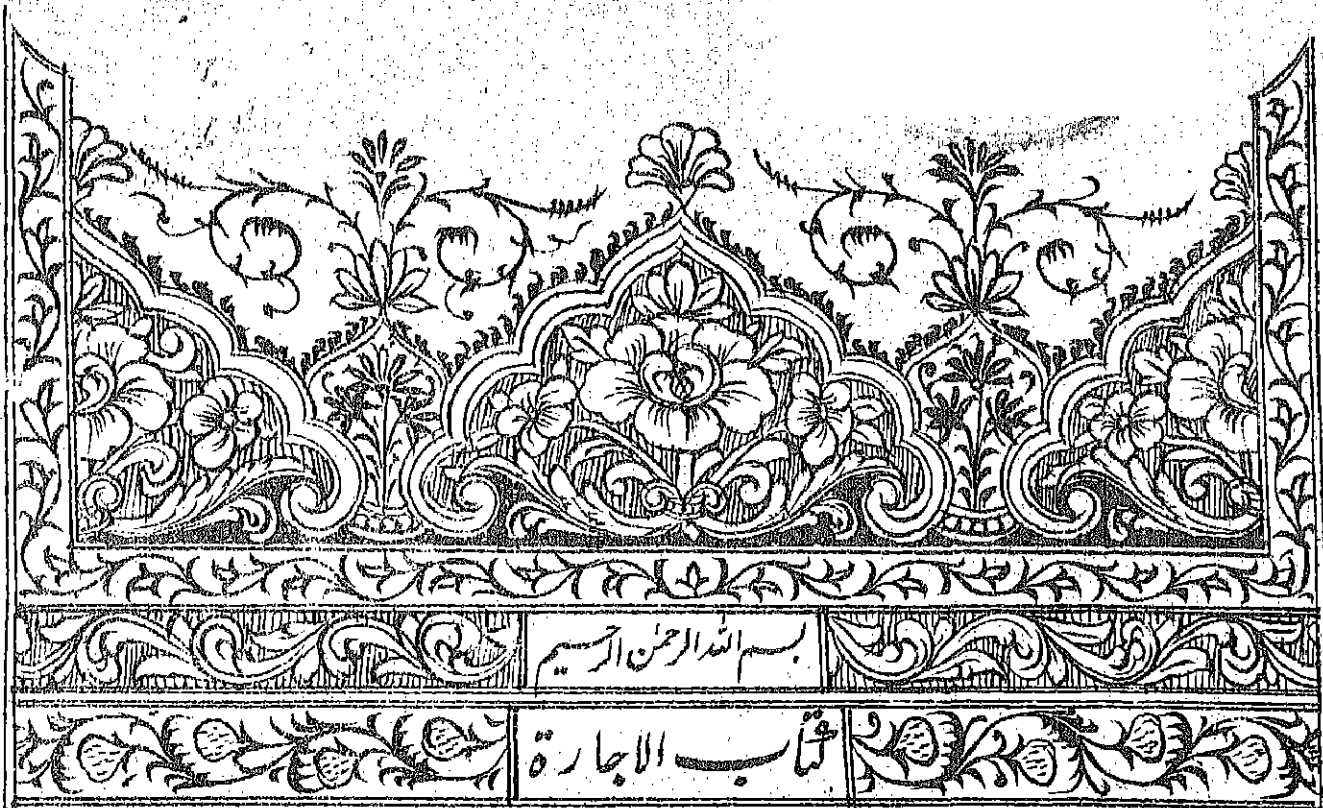 بسم الله الرحمن الرحيم
كتاب الاجارة